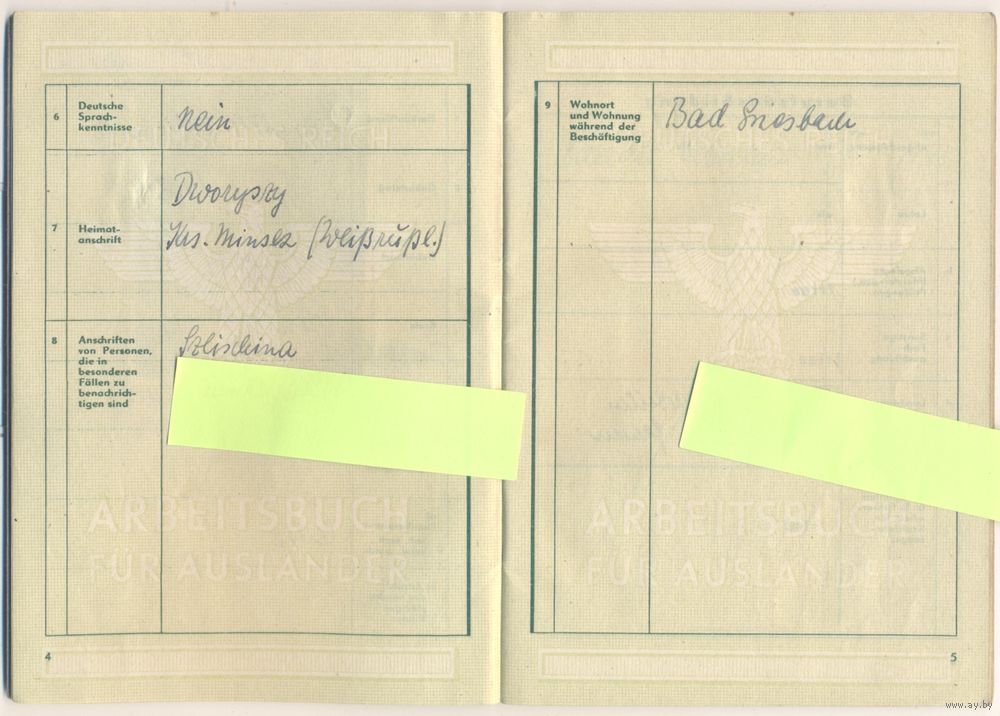 6
Deutsche
Sprach-
kenntnisse
nein
7
Heimat-
anschrift
Dworyszy
Krs. Minsek (Weißrußl.)
8
Anschriften
von Personen,
die in
besonderen
Fällen zu
benachrich-
tigen sind
Szlischina
ARBEITSBUCH
FÜR AUSLÄNDER
4
9
Wohnort
und Wohnung
während der
Beschäftigung
Bad
ARBEITSBUCH
FÜR AUSLÄNDER
5
www.ay.by